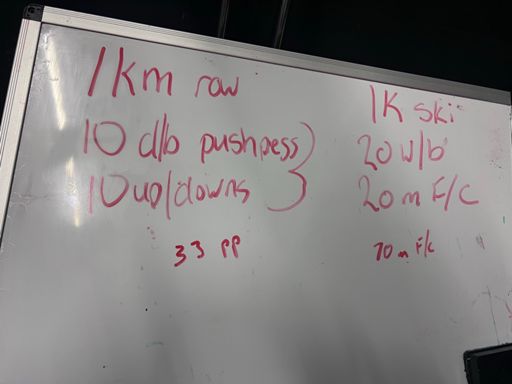 1km row
10 d/b pushpess
10 up/downs
33 PP
1K ski
20 w/b
20m F/C
70m F/C